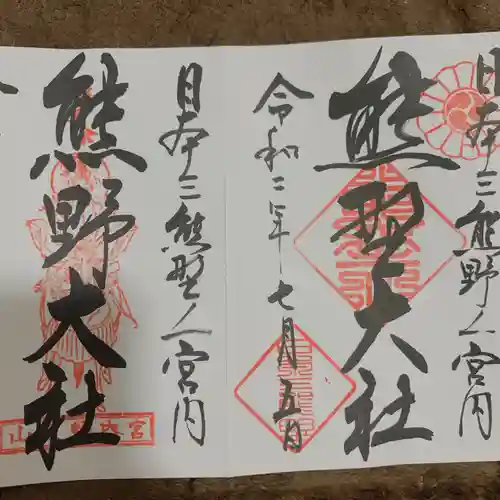 日本三熊野ノ宮内
熊野大社
令和二年七月五日
日本三熊野ノ宮内
熊野大社